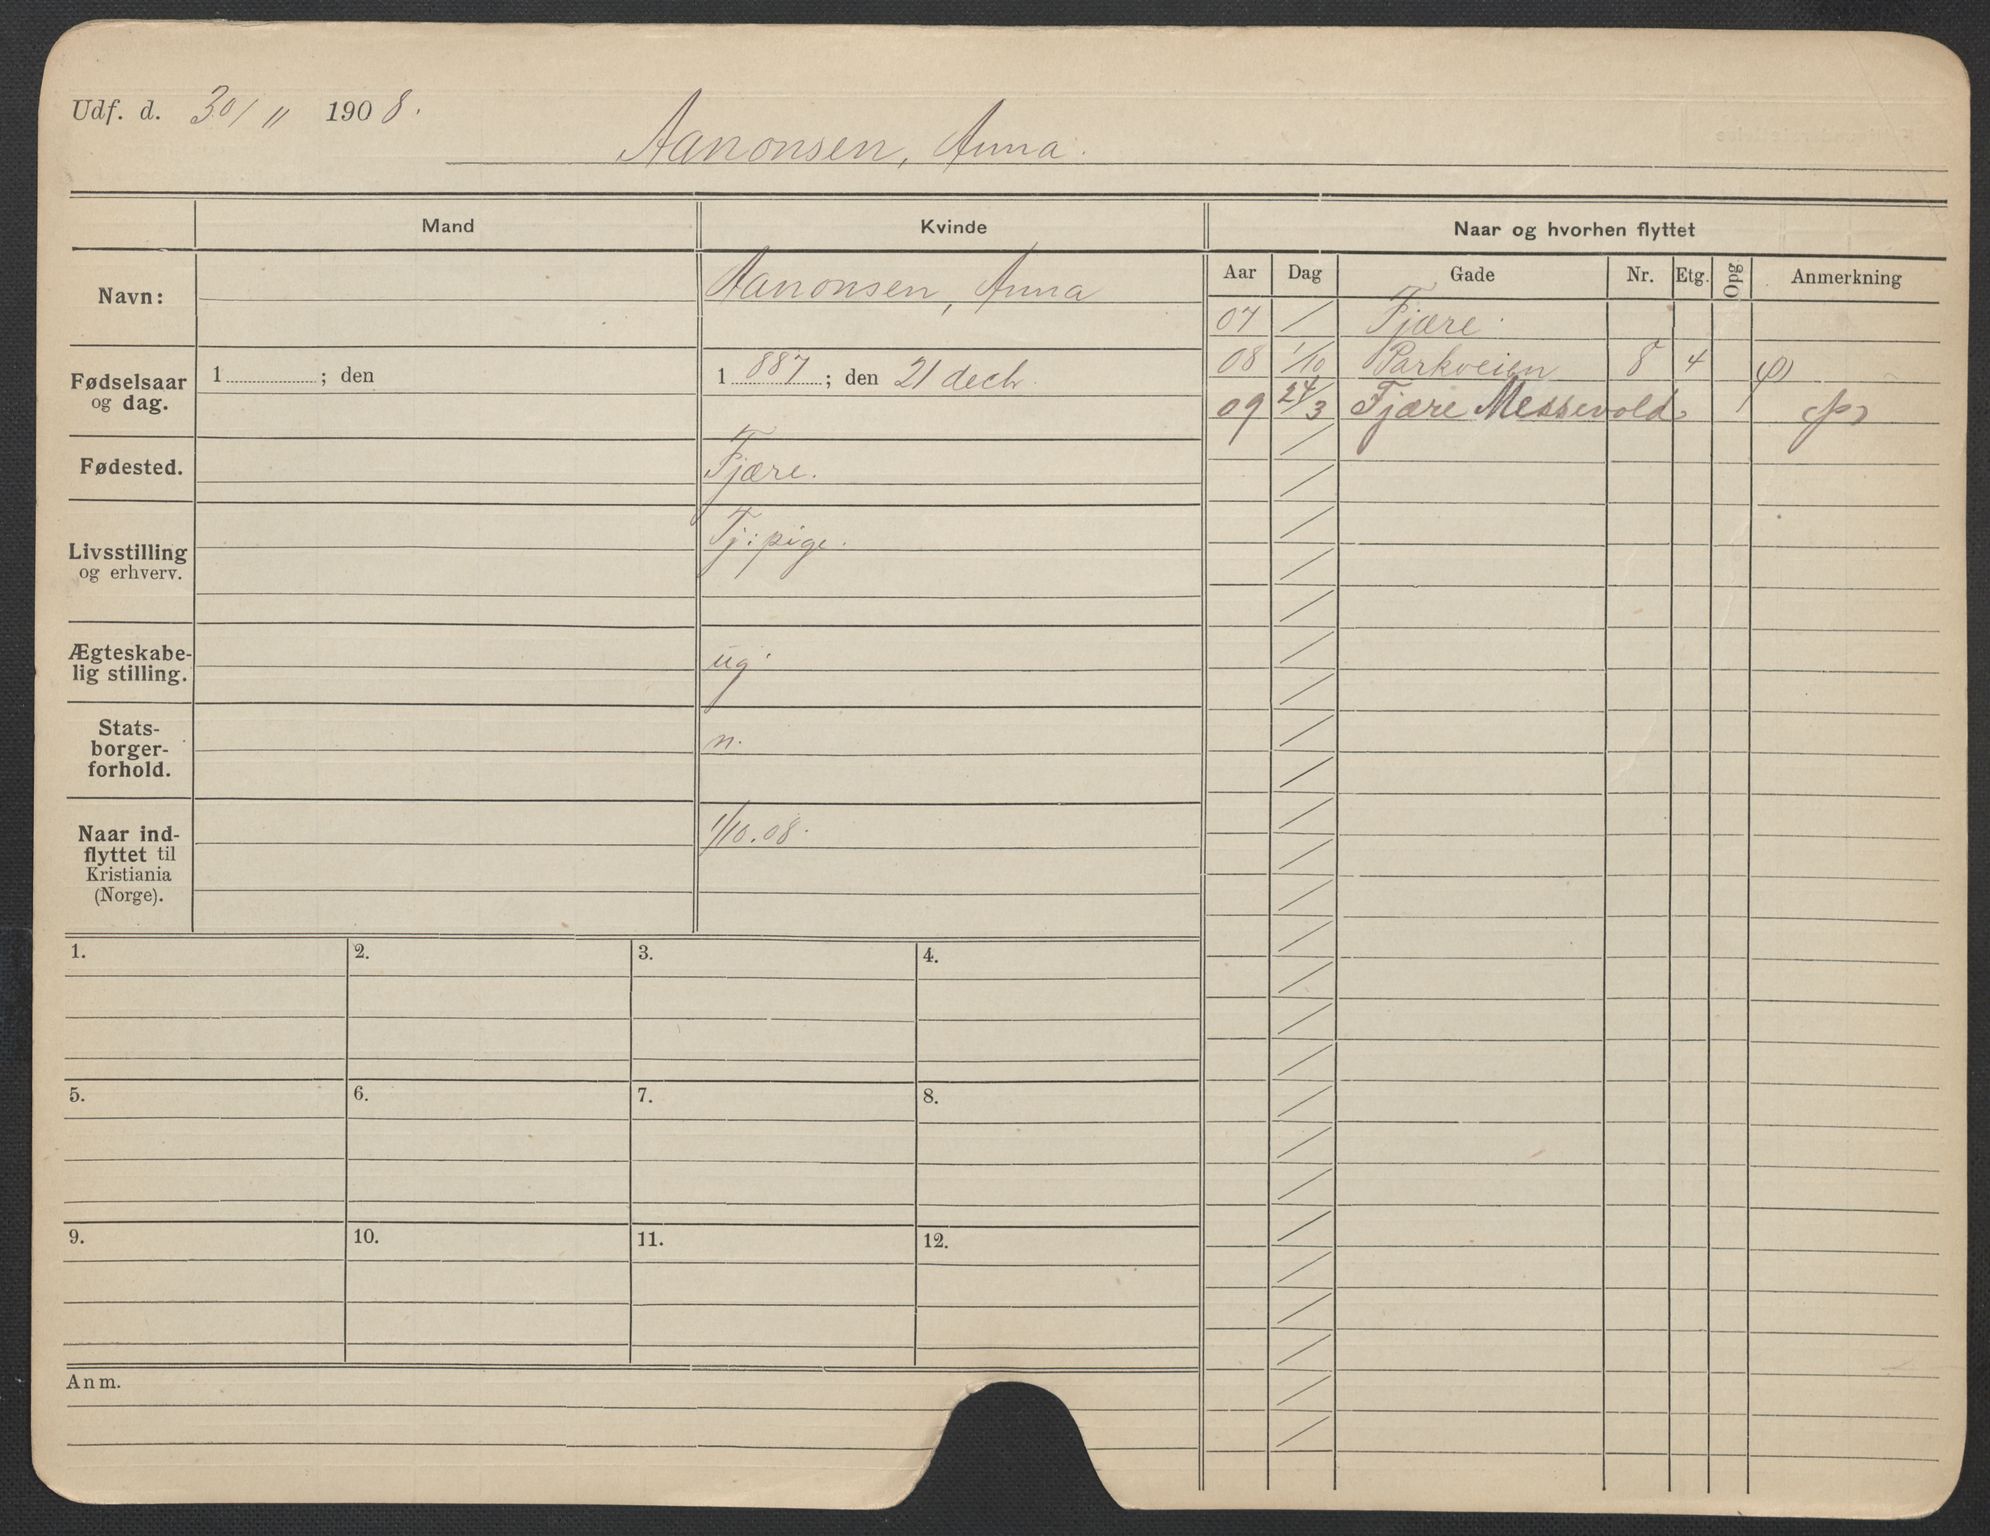 Udf. d. 30/11 1908.
Aanonsen, Anna.
Mand
Kvinde
Naar og hvorhen flyttet
Aar
Dag
Gade
Nr.
Etg.
Opg
Anmerkning
Navn:
Aanonsen, Anna
07 / Fjære.
08 1/10 Parkveien 8 4
09 24/3 Fjære Messevold
Fødselsaar
og dag.
1 ; den
1 887 ; den 21 decb.
Fødested.
Fjære.
Livsstilling
og erhverv.
Tj: pige.
Ægteskabe-
lig stilling.
ug.
Stats-
borger-
forhold.
n.
Naar ind-
flyttet til
Kristiania
(Norge).
1/10.08.
1.
2.
3.
4.
5.
6.
7.
8.
9.
10.
11.
12.
Anm.